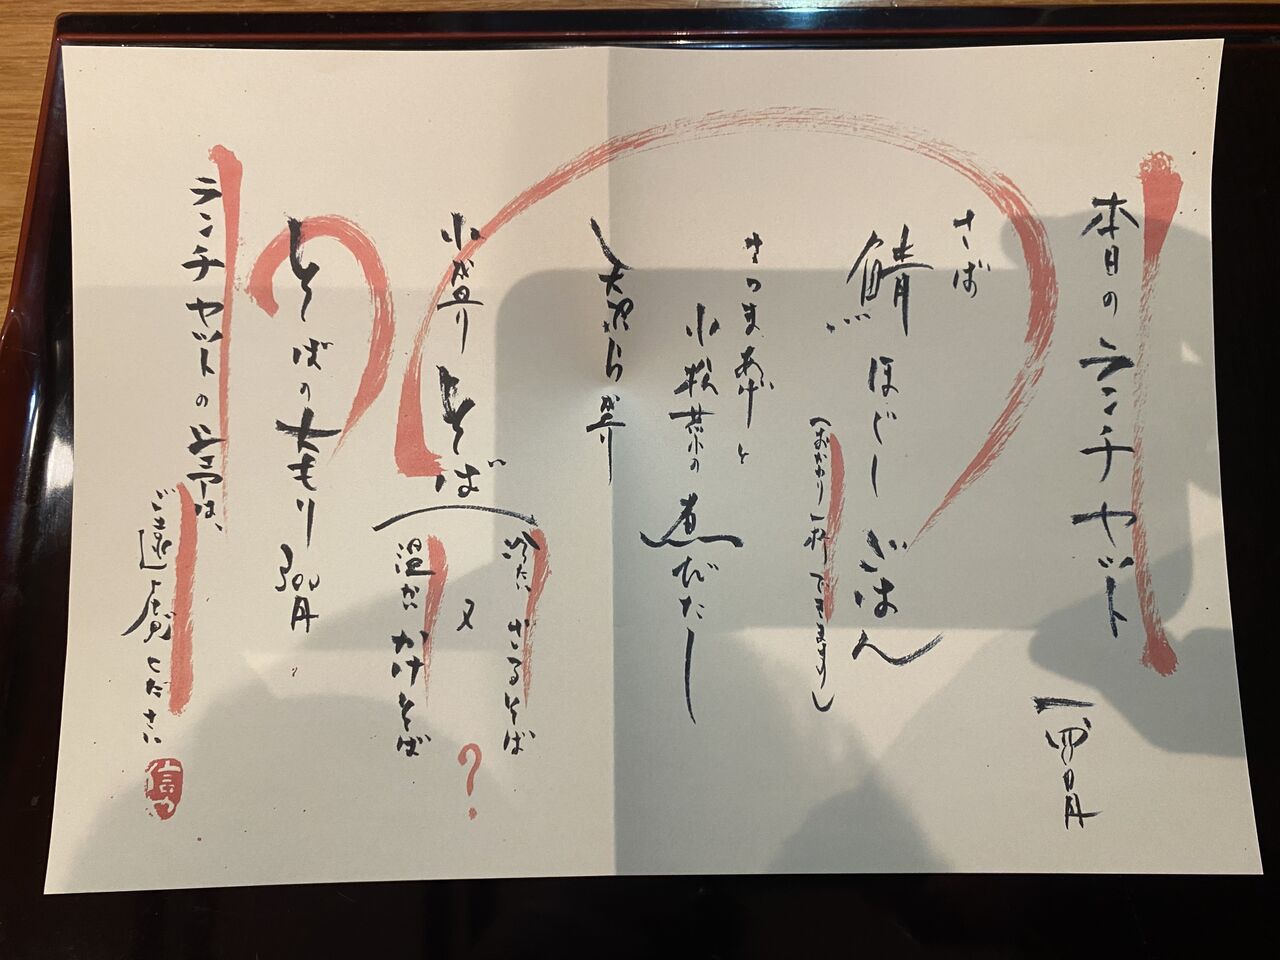 本日のランチセット
さば
鯖ほぐしごはん
(おかわり一杯できます)
さつまあげと
小松菜の煮びたし
小盛りそば
冷たいざるそば
又
温かいかけそば
?
そばの大もり 300円
ランチセットの
は、
ご遠慮ください